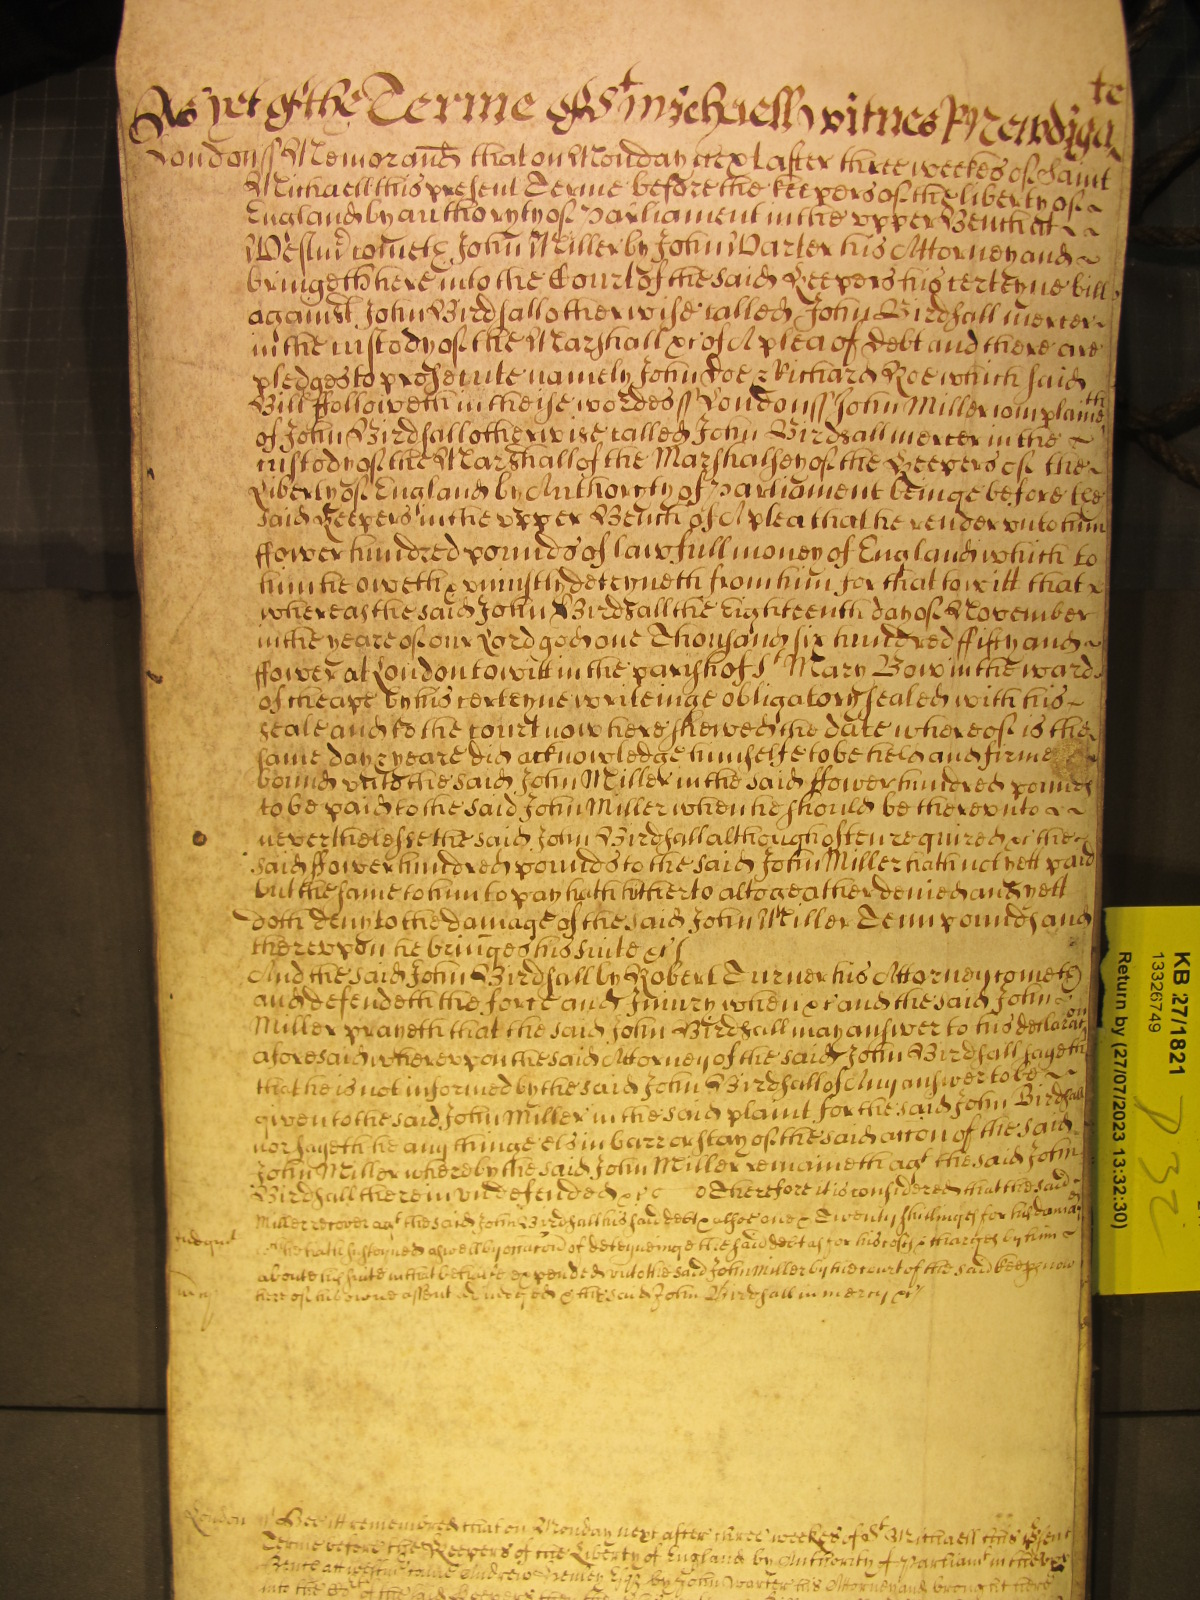 As yet of the Terme of St Michaell witnes Newdigate
London ss Memorand that on Monday next after three weekes of Saint
Michaell this present Terme before the keepers of the liberty of
England by authoryty of Parliament in the upper Bench at
Westmr cometh John Miller by John Warter his Attorney and
bringeth here into the Court of the said Keepers his certeyne bill
against John Birdsall otherwise called John Birdsall mercer
in the custody of the Marshall &c of A plea of debt and there are
pledges to prosecute namely John Doe & Richard Roe which said
Bill ffolloweth in these wordes ss London ss John Miller complaineth
of John Birdsall otherwise called John Birdsall mercer in the
custody of the Marshall of the Marshalsey of the Keepers of the
Liberty of England by Authoryty of Parliament beinge before the
said Keepers in the upper Bench of A plea that he render unto him
ffower hundred pounds of lawfull money of England which to
him he oweth & uniustly deteyneth from him for that to witt that
whereas the said John Birdsall the Eighteenth day of November
in the yeare of our Lord god one Thousand six hundred ffifty and
ffower at London to witt in the parish of St Mary Bow in the ward
of cheape by his certeyne writeinge obligatory sealed with his
seale and to the court now here shewed the date whereof is the
same day & yeare did acknowledge himselfe to be held and firmely
bound unto the said John Miller in the said ffower hundred pounds
to be paid to the said John Miller when he should be thereunto
neverthelesse the said John Birdsall although often required &c the
said ffower hundred pounds to the said John Miller hath not yett paid
but the same to him to pay hath hitherto altogeather denied and yett
doth deny to the damage of the said John Miller Tenn pounds and
thereuppon he bringes his suite &c
And the said John Birdsall by Robert Turner his Attorney cometh
and defendeth the force and Iniury when &c and the said John
Miller prayeth that the said John Birdsall may answer to his declaration
aforesaid whereuppon the said Attorney of the said John Birdsall sayeth
that he is not informed by the said John Birdsall of Any answer to be
given to the said John Miller in the said plaint for the said John Birdsall
nor sayeth he any thinge els in barr or stay of the said accon of the said
John Miller whereby the said John Miller remaineth agt the said John
Birdsall therein undefended &c Therefore it is considered that the said
Miller recover agt the said John Birdsall his said debt & alsoe one & Twenty shillinges for his damages
which he hath susteyned aswell by occasion of deteyneinge the said debt as for his costs & charges by him
aboute his suite in that behalfe expended unto the said John Miller by the court of the said keepers now
here of his owne assent adiudged & the said John Birdsall in mercy &c
London ss Bee itt remembred that on Monday next after three weekes of St Michaell this present
Terme before the Keepers of the Liberty of England by Authority of Parliamt in the upper
Bench at Westmr came Andrew Esqr by John Warter his Attorney and brought here
into the Court of the said Keepers then
KB 27/1821
13326749
Return by (27/07/2023 13:32:30)